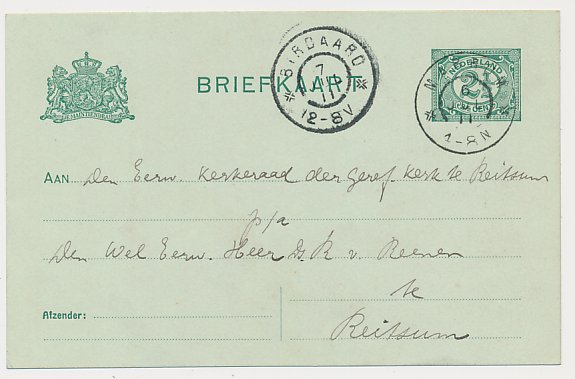 BRIEFKAART
BIRDAARD
7
11
12-8V
NEDERLAND
2½
CENT
6
11
4-8N
JE MAINTIENDRAI
AAN Den Eerw. Kerkeraad der Geref. Kerk te Reitsum
p/a
Den Wel Eerw. Heer Ds. R. v. Reenen
te
Afzender:
Reitsum